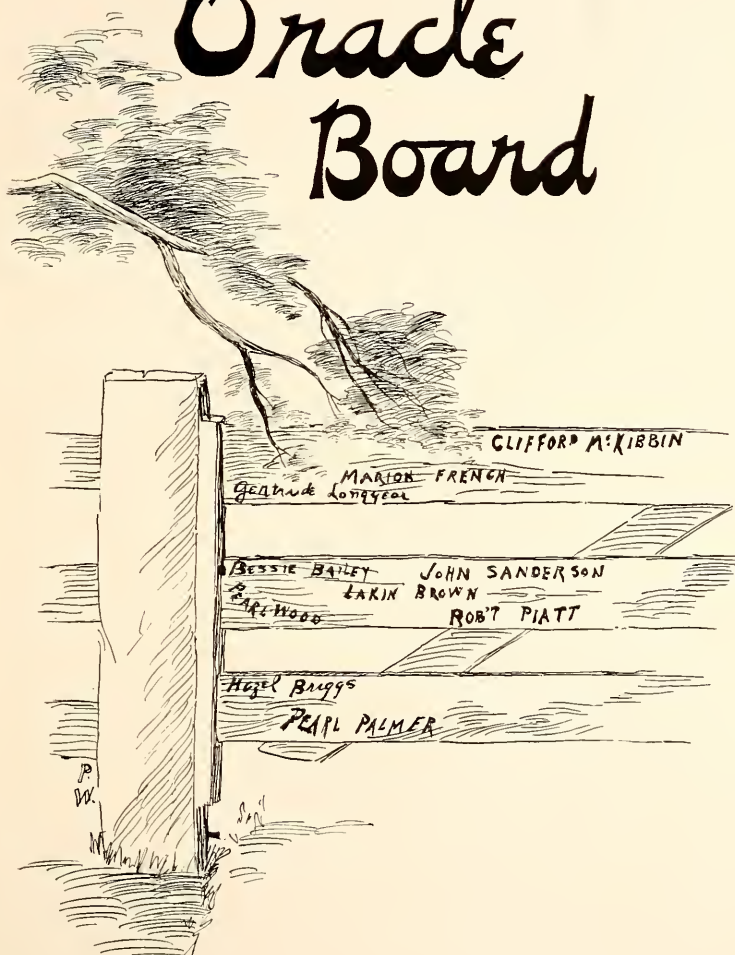 Oracle
Board
CLIFFORD McKIBBIN
MARION FRENCH
Gertrude Longyear
BESSIE BAILEY JOHN SANDERSON
LAKIN BROWN
PEARL WOOD
ROB'T PIATT
Hazel Briggs
PEARL PALMER
P.
W.